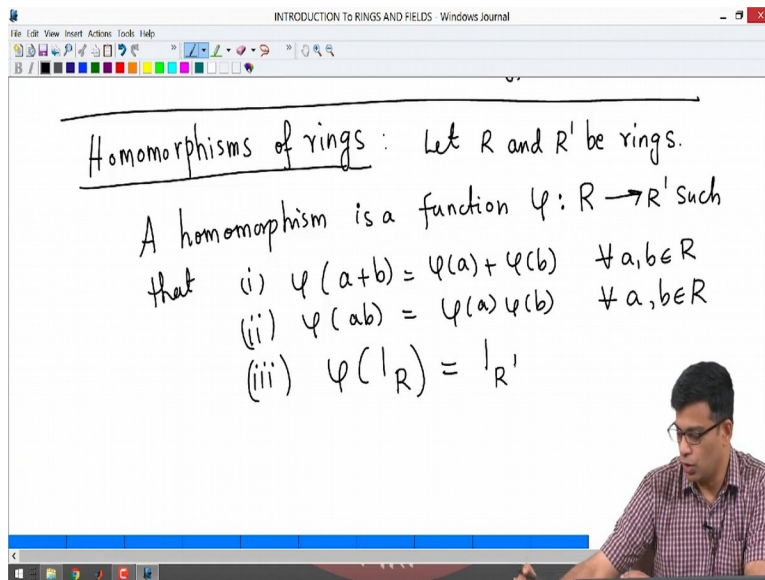 INTRODUCTION To RINGS AND FIELDS - Windows Journal
File Edit View Insert Actions Tools Help
B I
Homomorphisms of rings : Let R and R' be rings.
A homomorphism is a function φ : R → R' such
that (i) φ(a+b) = φ(a) + φ(b) ∀ a, b ∈ R
(ii) φ(ab) = φ(a) φ(b) ∀ a, b ∈ R
(iii) φ(1_R) = 1_R'